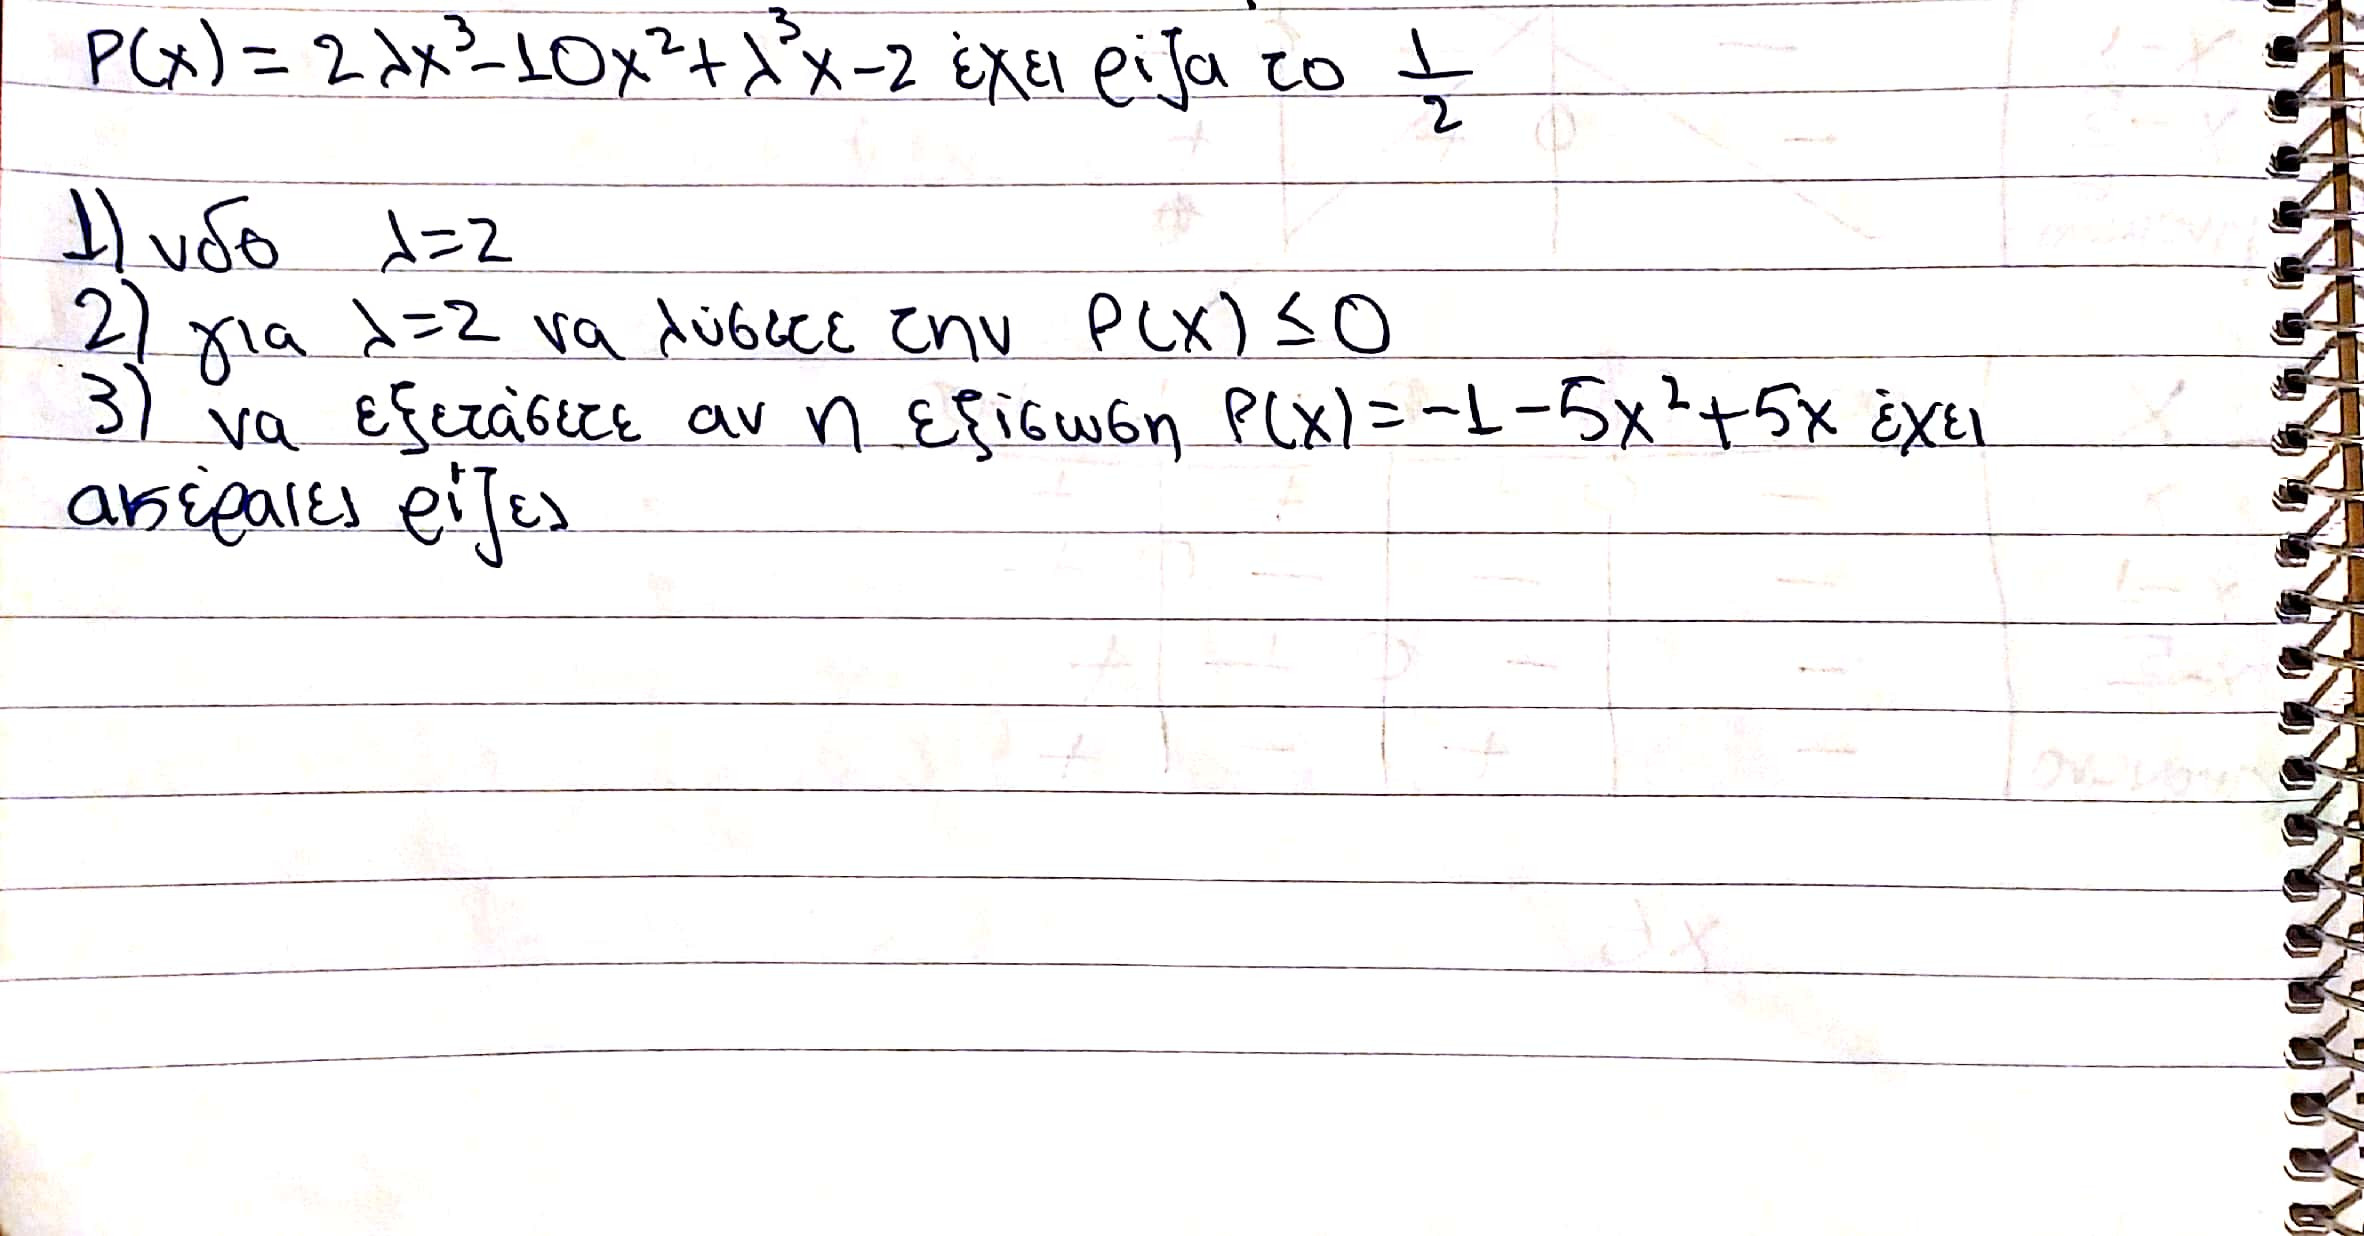 P(x) = 2λx³-10x²+λ³x-2 έχει ρίζα το 1/2
1) νδο λ=2
2) για λ=2 να λύσετε την P(x) ≤ 0
3) να εξετάσετε αν η εξίσωση P(x) = -1-5x²+5x έχει
ακέραιες ρίζες